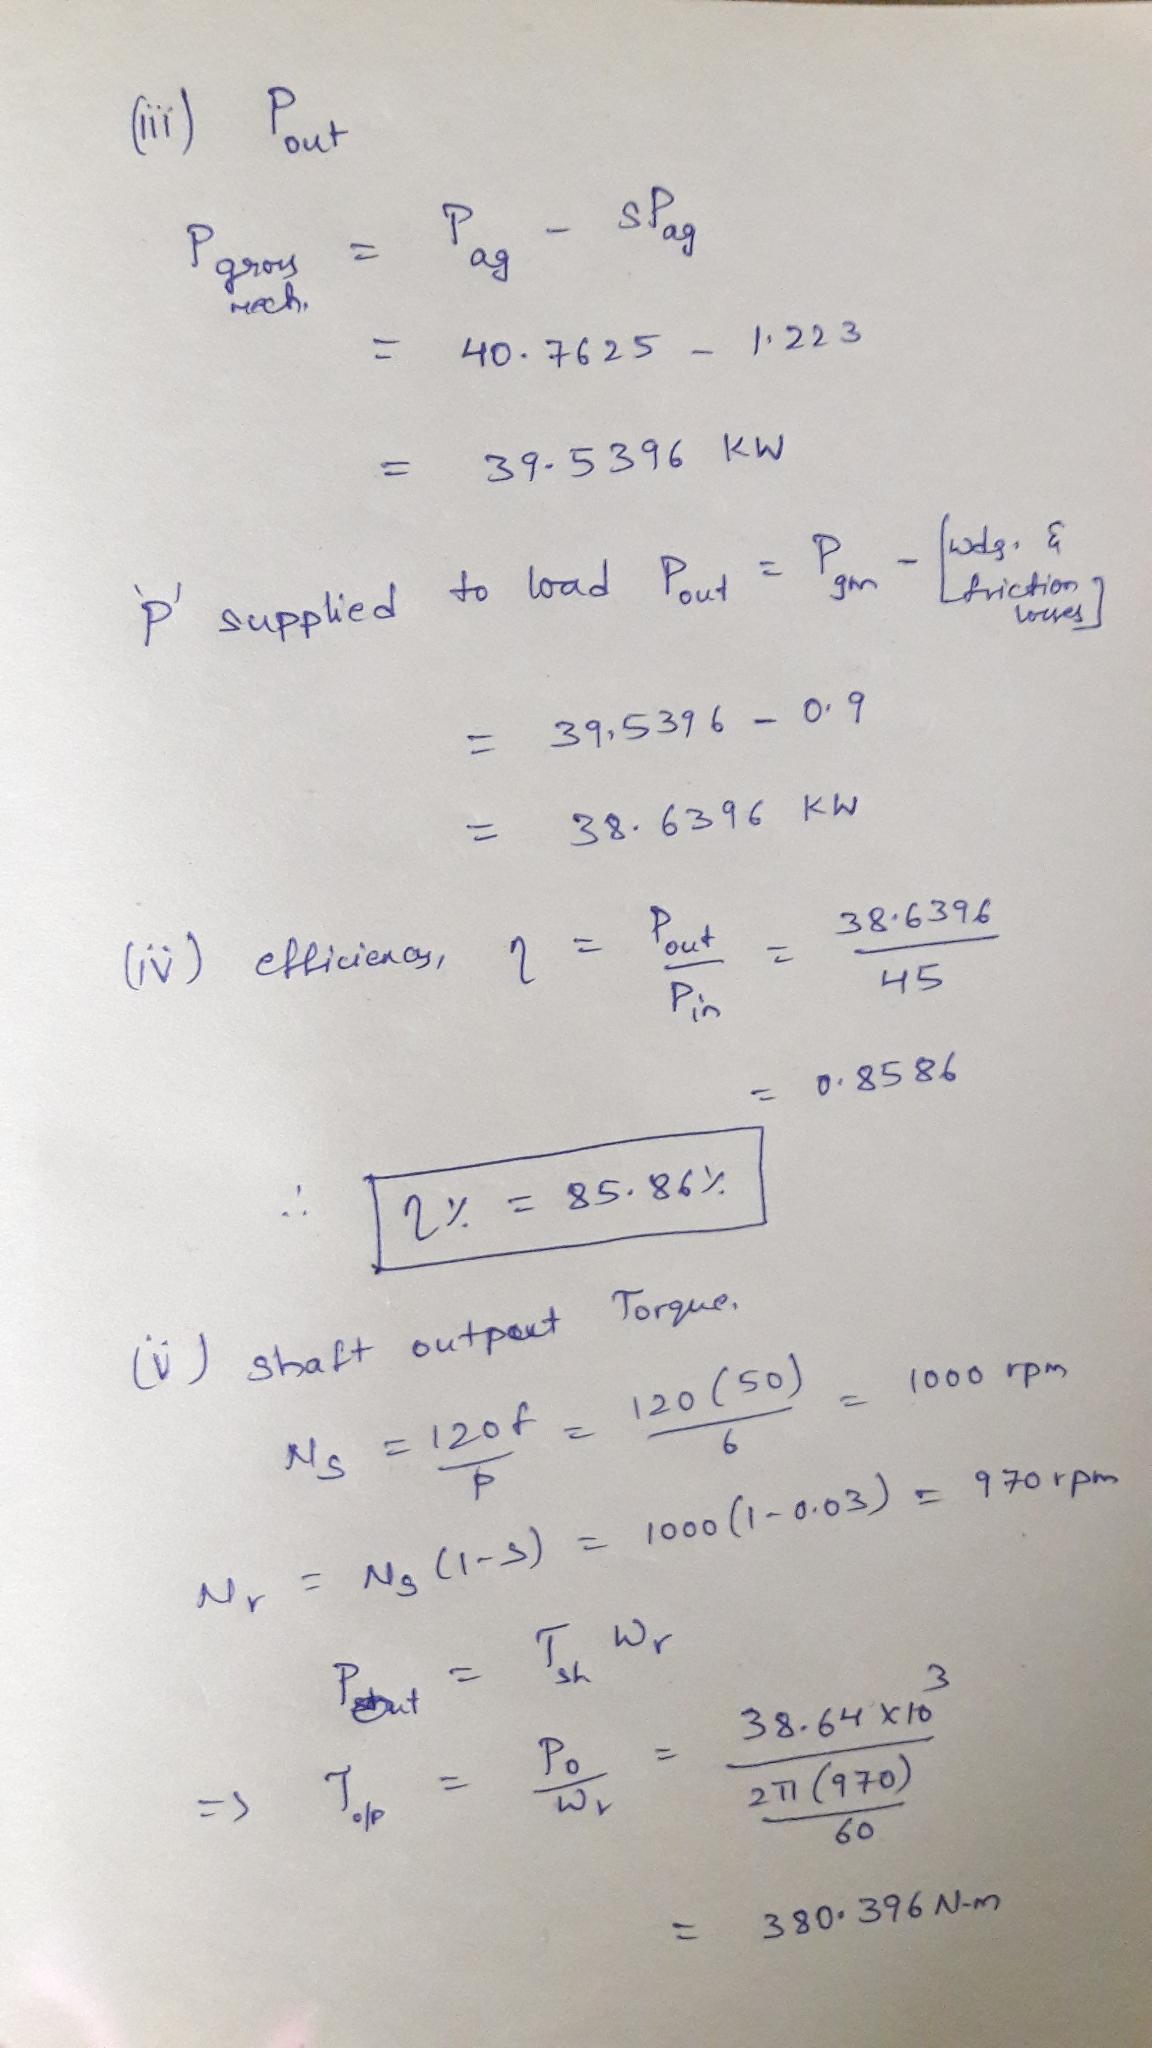 (iii) Pout
Pgross mech. = Pag - sPag
= 40.7625 - 1.223
= 39.5396 KW
'P' supplied to load Pout = Pgm - [wdg. & friction losses]
= 39.5396 - 0.9
= 38.6396 KW
(iv) efficiency, η = Pout/Pin = 38.6396/45
= 0.8586
∴ η% = 85.86%
(v) shaft output Torque.
Ns = 120f/P = 120(50)/6 = 1000 rpm
Nr = Ns(1-s) = 1000(1-0.03) = 970 rpm
Pout = Tsh Wr
=> To/p = Po/Wr = 38.64 x 10³ / (2π(970)/60)
= 380.396 N-m